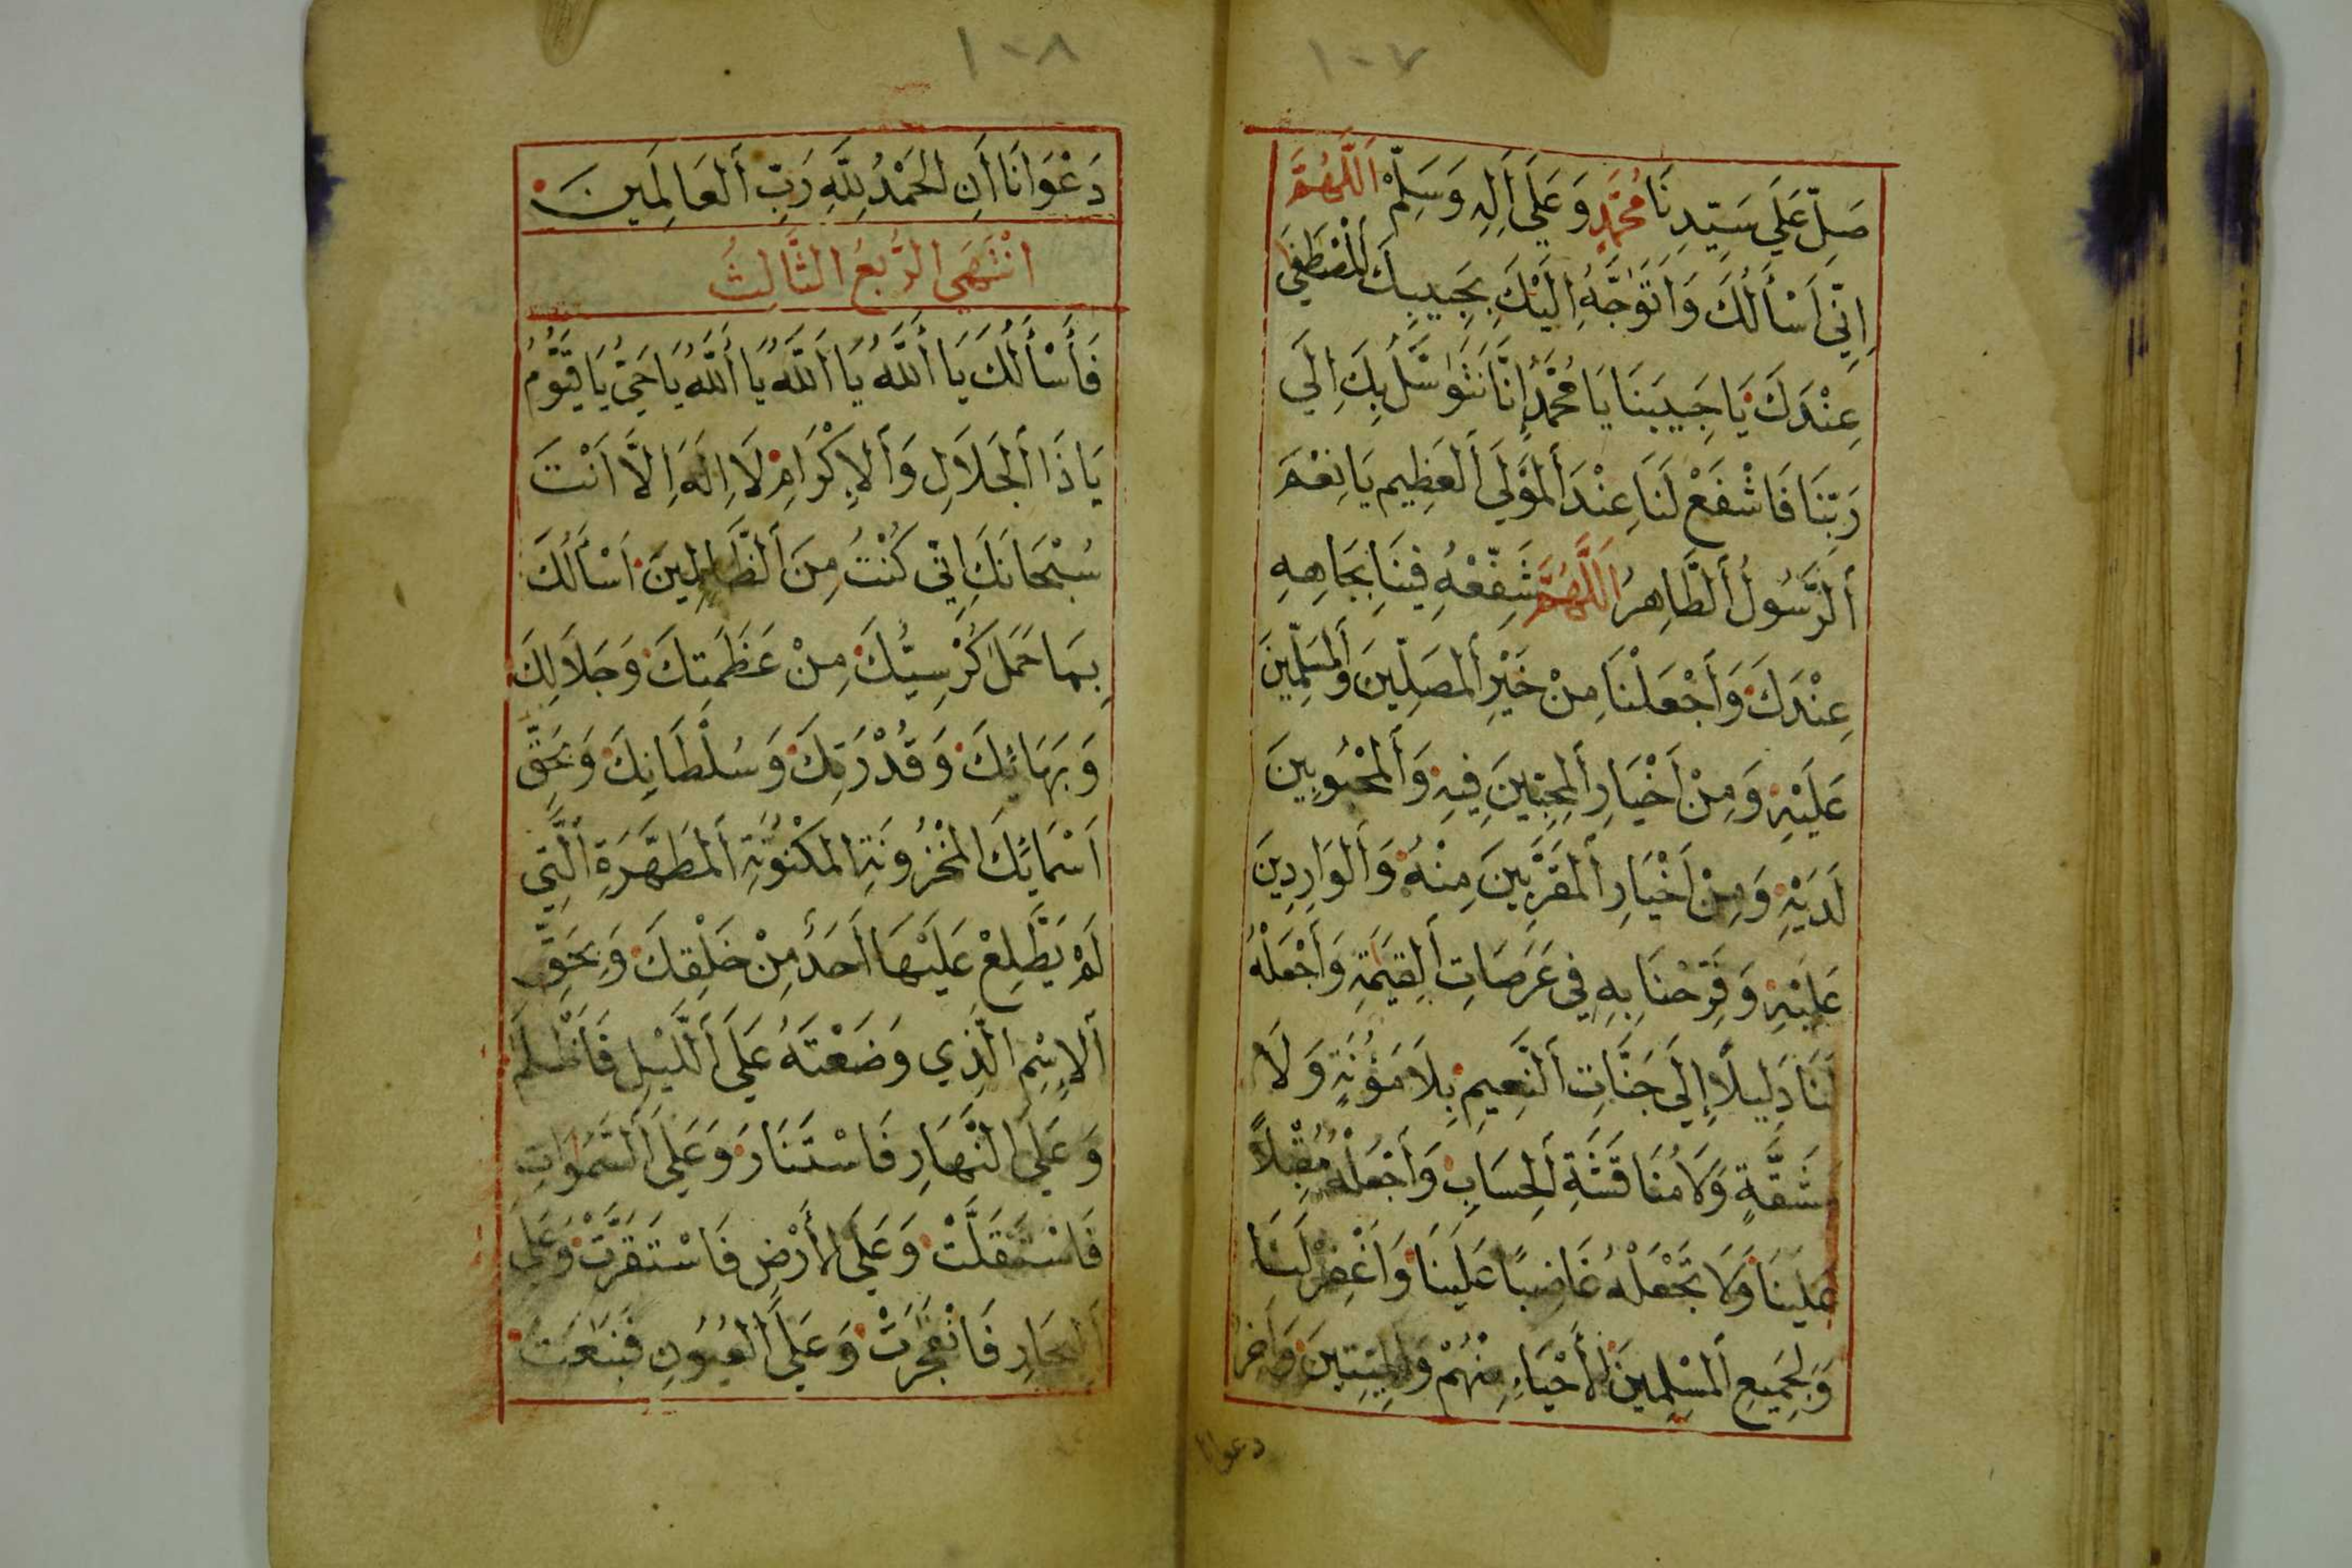 ١٠٧
صَلِّ عَلَي سَيِّدِنَا مُحَمَّدٍ وَعَلَى أَلِهِ وَسَلِّمْ اَللَّهُمَّ
اِنِّي اَسْأَلُكَ وَاَتَوَجَّهُ اِلَيْكَ بِحَبِيبِكَ اَلْمُصْطَفَي
عِنْدَكَ يَا حَبِيبَنَا يَا مُحَمَّدُ إِنَّا نَتَوَسَّلُ بِكَ اِلَي
رَبِّنَا فَاشْفَعْ لَنَا عِنْدَ أَلمَوْلَي أَلعَظِيمِ يَا نِعْمَ
أَلرَّسُولُ أَلطَّاهِرُ اَللَّهُمَّ شَفِّعْهُ فِينَا بِجَاهِهِ
عِنْدَكَ وَأَجْعَلْنَا مِنْ خَيْرِ أَلمُصَلِّينَ وَأَلمُسَلِّمِينَ
عَلَيْهِ وَمِنْ اَخْيَارِ أَلمُحِبِّينَ فِيهِ وَأَلمَحْبُوبِينَ
لَدَيْهِ وَمِنْ اَخْيَارِ أَلمُقَرَّبِينَ مِنْهُ وَأَلوَارِدِينَ
عَلَيْهِ وَفَرِّحْنَا بِهِ فِي عَرَصَاتِ أَلقِيَمَةِ وَأَجْعَلْهُ
لَنَا دَلِيلاً إِلَي جَنَّاتِ أَلنَّعِيمِ بِلاَ مَؤُنَةٍ وَلاَ
مَشَقَّةٍ وَلاَ مُنَاقَشَةِ أَلحِسَابِ وَأَجْعَلْهُ مُقْبِلاً
عَلَيْنَا وَلاَ تَجْعَلْهُ غَاضِبًا عَلَيْنَا وَاَغْفِرْ لَنَا
وَلِجَمِيعِ أَلمُسْلِمِينَ اَلأَحْيَاءِ مِنْهُمْ وَالمَيِّتِينَ وَأَخِرُ
دعوانا
١٠٨
دَعْوَانَا أَنِ الحَمْدُ لِلَّهِ رَبِّ أَلعَالَمِينَ
انْتَهَي الرُّبعُ الثَّالِثُ
فَأَسْأَلُكَ يَا أَللَّهُ يَا اَللَّهُ يَا أَللَّهُ يَا حَيُّ يَا قَيُّومُ
يَا ذَا أَلجَلاَلِ وَأَلإِكْرَامِ لاَ اِلَهَ اِلاَّ اَنْتَ
سُبْحَانَكَ اِنِّي كُنْتُ مِنَ أَلظَّالِمِينَ اَسْأَلُكَ
بِمَا حَمَلَ كُرْسِيُّكَ مِنْ عَظَمَتِكَ وَجَلاَلِكَ
وَبَهَائِكَ وَقُدْرَتِكَ وَسُلْطَانِكَ وَبِحَقِّ
اَسْمَائِكَ المَخْزُونَةِ المَكْنُونَةِ أَلمُطَهَّرَةِ الَّتِي
لَمْ يَطَّلِعْ عَلَيْهَا أَحَدٌ مِنْ خَلْقِكَ وَبِحَقِّ
أَلإِسْمِ الَّذِي وَضَعْتَهُ عَلَي أَللَّيْلِ فَأَظْلَمَ
وَعَلَي النَّهَارِ فَاسْتَنَارَ وَعَلَي أَلسَّمَوَاتِ
فَاسْتَقَلَّتْ وَعَلَي الأَرْضِ فَاسْتَقَرَّتْ وَعَلَي
أَلبِحَارِ فَانْفَجَرَتْ وَعَلَي أَلعُيُونِ فَنَبَعَتْ